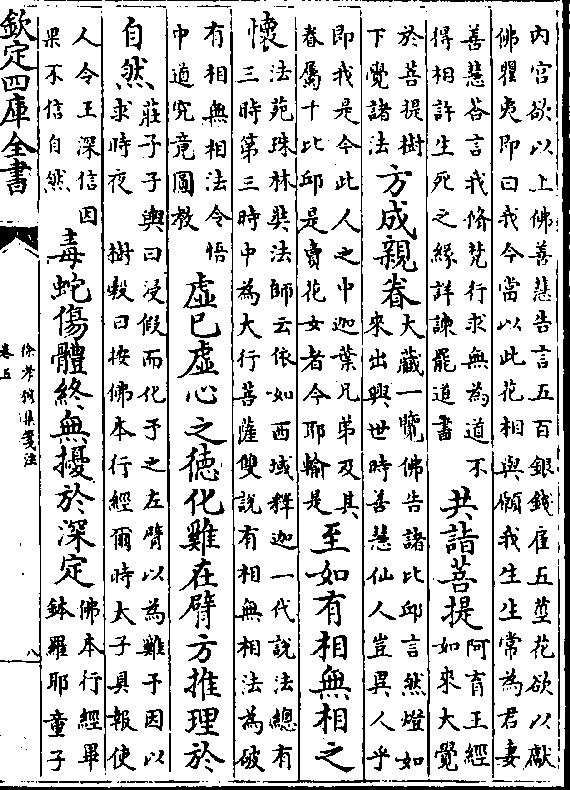 内宫欲以上佛善慧告言五百銀錢雇五莖花欲以獻
佛瞿夷即曰我今當以此花相與願我生生常為君妻
善慧答言我脩梵行求無為道不
得相許生死之緣詳諫罷道書
共詣菩提
阿育王經
如來大覺
於菩提樹
下覺諸法
方成親眷
大藏一覽佛告諸比邱言然燈如
來出興世時善慧仙人豈異人乎
即我是今此人之中迦葉兄弟及其
眷屬十比邱是賣花女者今耶輸是
至如有相無相之
懷
法苑珠林奘法師云依如西域釋迦一代說法總有
三時第三時中為大行菩薩雙說有相無相法為破
有相無相法令悟
中道究竟圓教
虚已虚心之徳化雞在臂方推理於
自然
莊子子輿曰浸假而化予之左臂以為雞予因以
求時夜 樹榖曰按佛本行經爾時太子具報使
人令王深信因
果不信自然
毒蛇傷體終無擾於深定
佛本行經畢
鉢羅耶童子
欽定四庫全書
徐孝穆集箋注
卷五
八